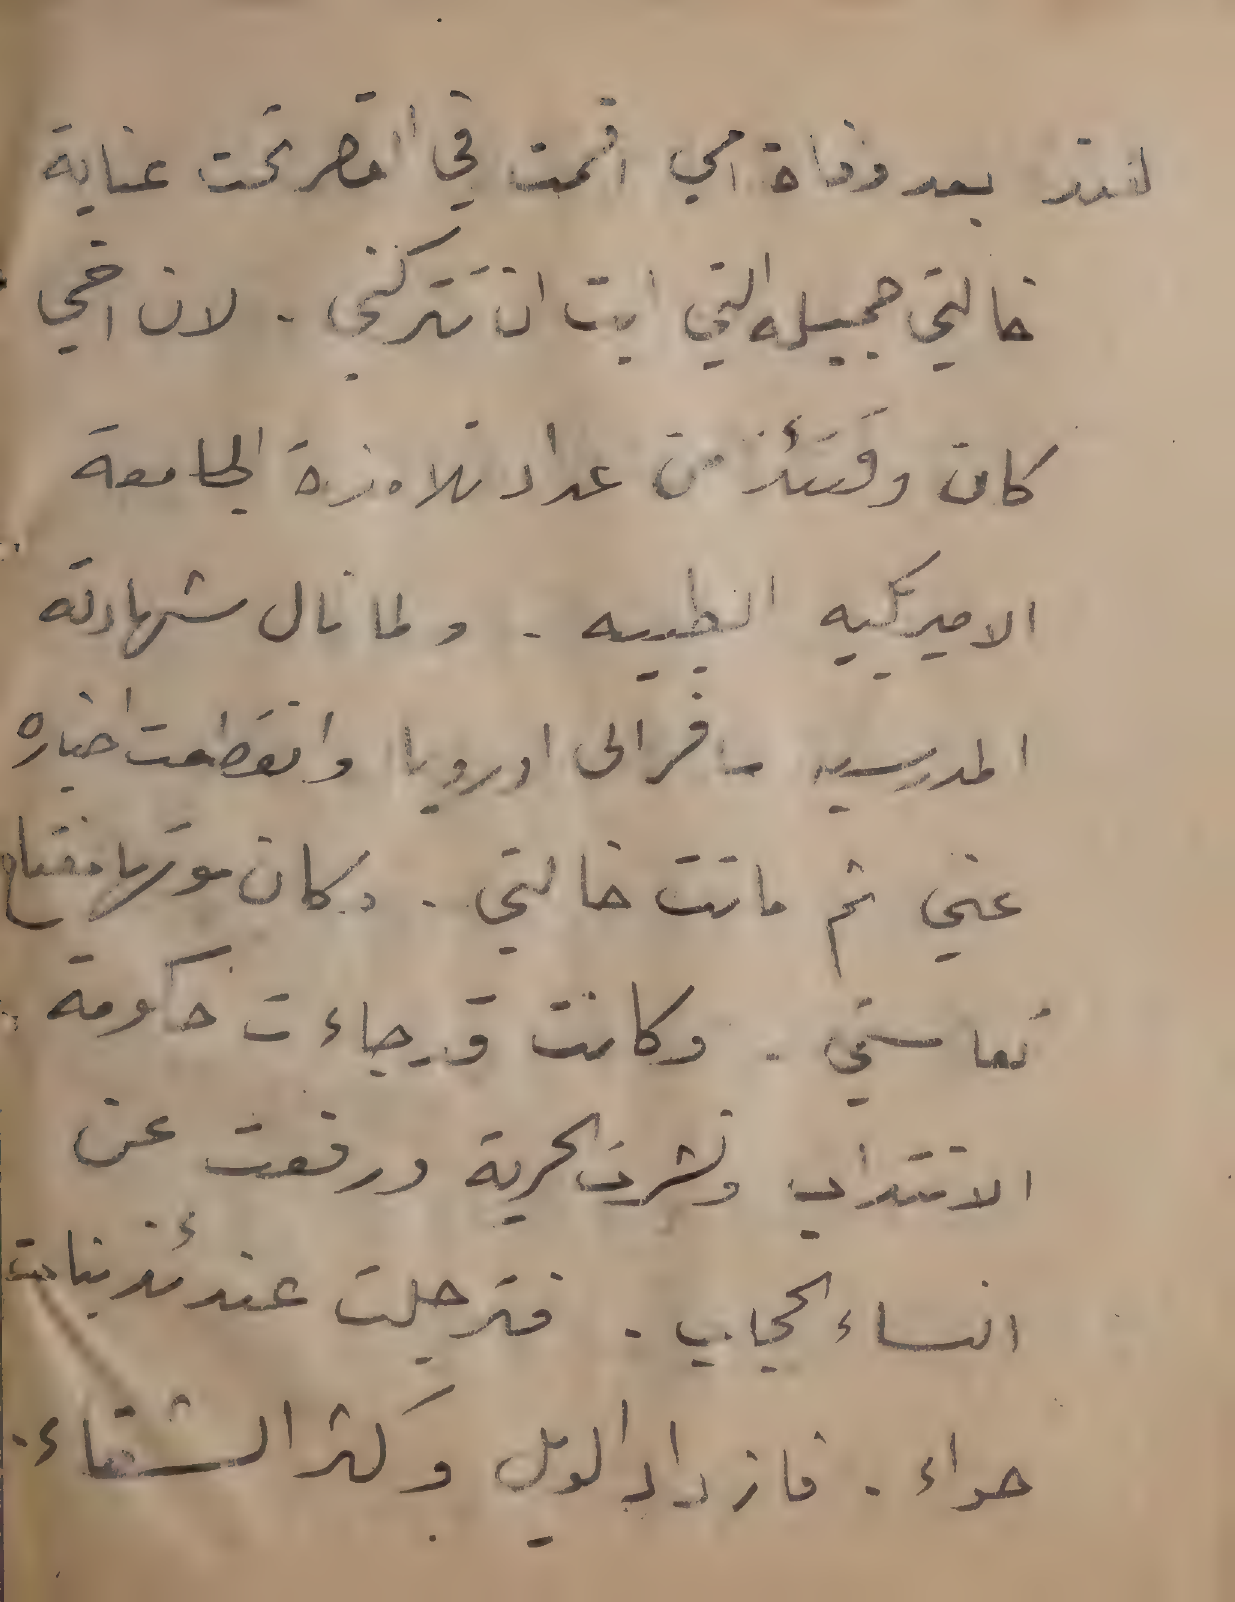 لقد بعد وفاة امي اقمت في القصر تحت عناية
خالتي جميله التي ابت ان تتركني . لان اخي
كان وقتئذ من عداد تلامذة الجامعة
الاميركيه الطبيه . ولما نال شهادته
المدرسيه سافر الى اوروبا وانقطعت اخباره
عني ثم ماتت خالتي . وكان موتها مفتاح
تعاستي . وكانت قد جاءت حكومة
الانتداب ونشرت الحرية ورفعت عن
النساء الحجاب . فترجلت عندئذ بنات
حواء . فازداد الويل وكثر الشقاء .